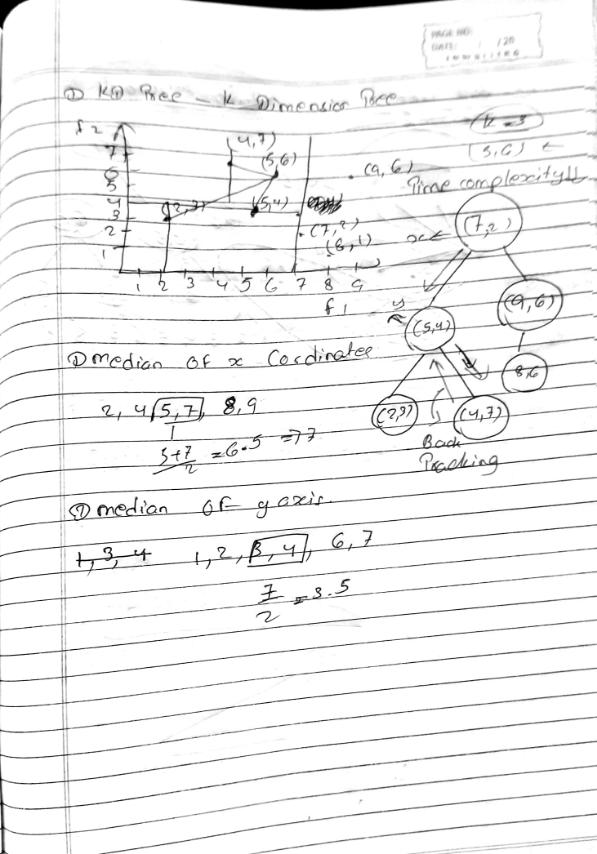 PAGE NO:
DATE: / /20
① KD Tree - K Dimension Tree
f2
7
6
5
4
3
2
1
(4,7)
(5,6)
(9,6)
(2,3)
(5,4)
(7,2)
(8,1)
1 2 3 4 5 6 7 8 9
f1
k = 3
(5,6)
Time complexity ↓↓
x ←
(7,2)
y
(5,4)
(9,6)
8,6
(2,3)
(4,7)
Back
Tracking
① median of x Cordinates
2, 4 5, 7, 8, 9
5+7/2 = 6.5 => 7
② median of y axis.
1, 3, 4 1, 2, 3, 4, 6, 7
7/2 = 3.5